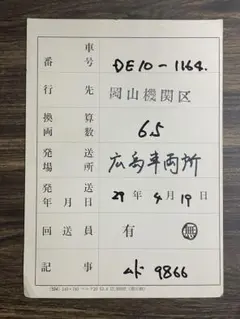 車番号 DE10-1164.
行先 岡山機関区
換算両数 6.5
発送場所 広島車両所
発送年月日 29年4月19日
回送員 有 無
記事 9866